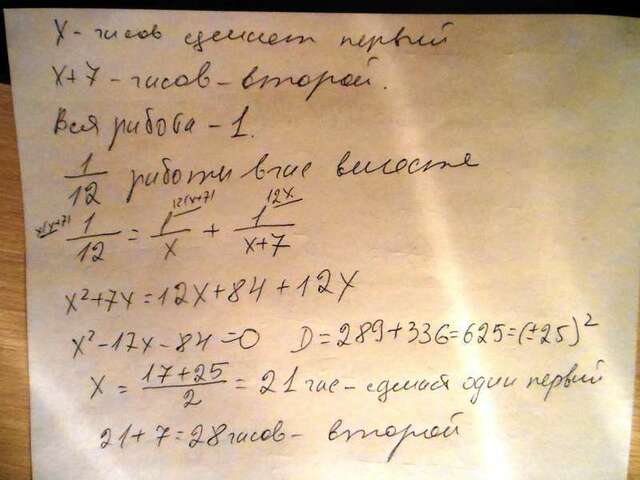 X - часов сделает первый
X+7 - часов - второй.
Вся работа - 1.
1/12 работы в час вместе
x(x+7) 1/12 = 1/x 12(x+7) + 1/(x+7) 12x
x²+7x=12x+84+12x
x²-17x-84=0 D=289+336=625=(±25)²
X = (17+25)/2 = 21 час - сделает один первый
21+7=28 часов - второй